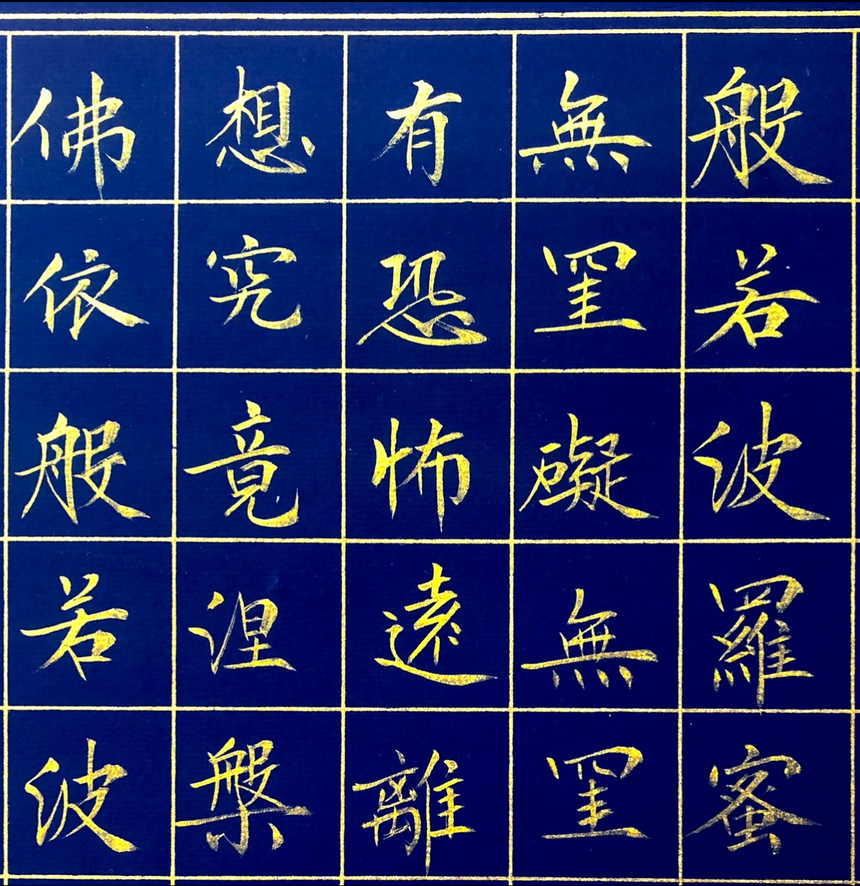 般若波羅蜜
無罣礙無罣
有恐怖遠離
想究竟涅槃
佛依般若波